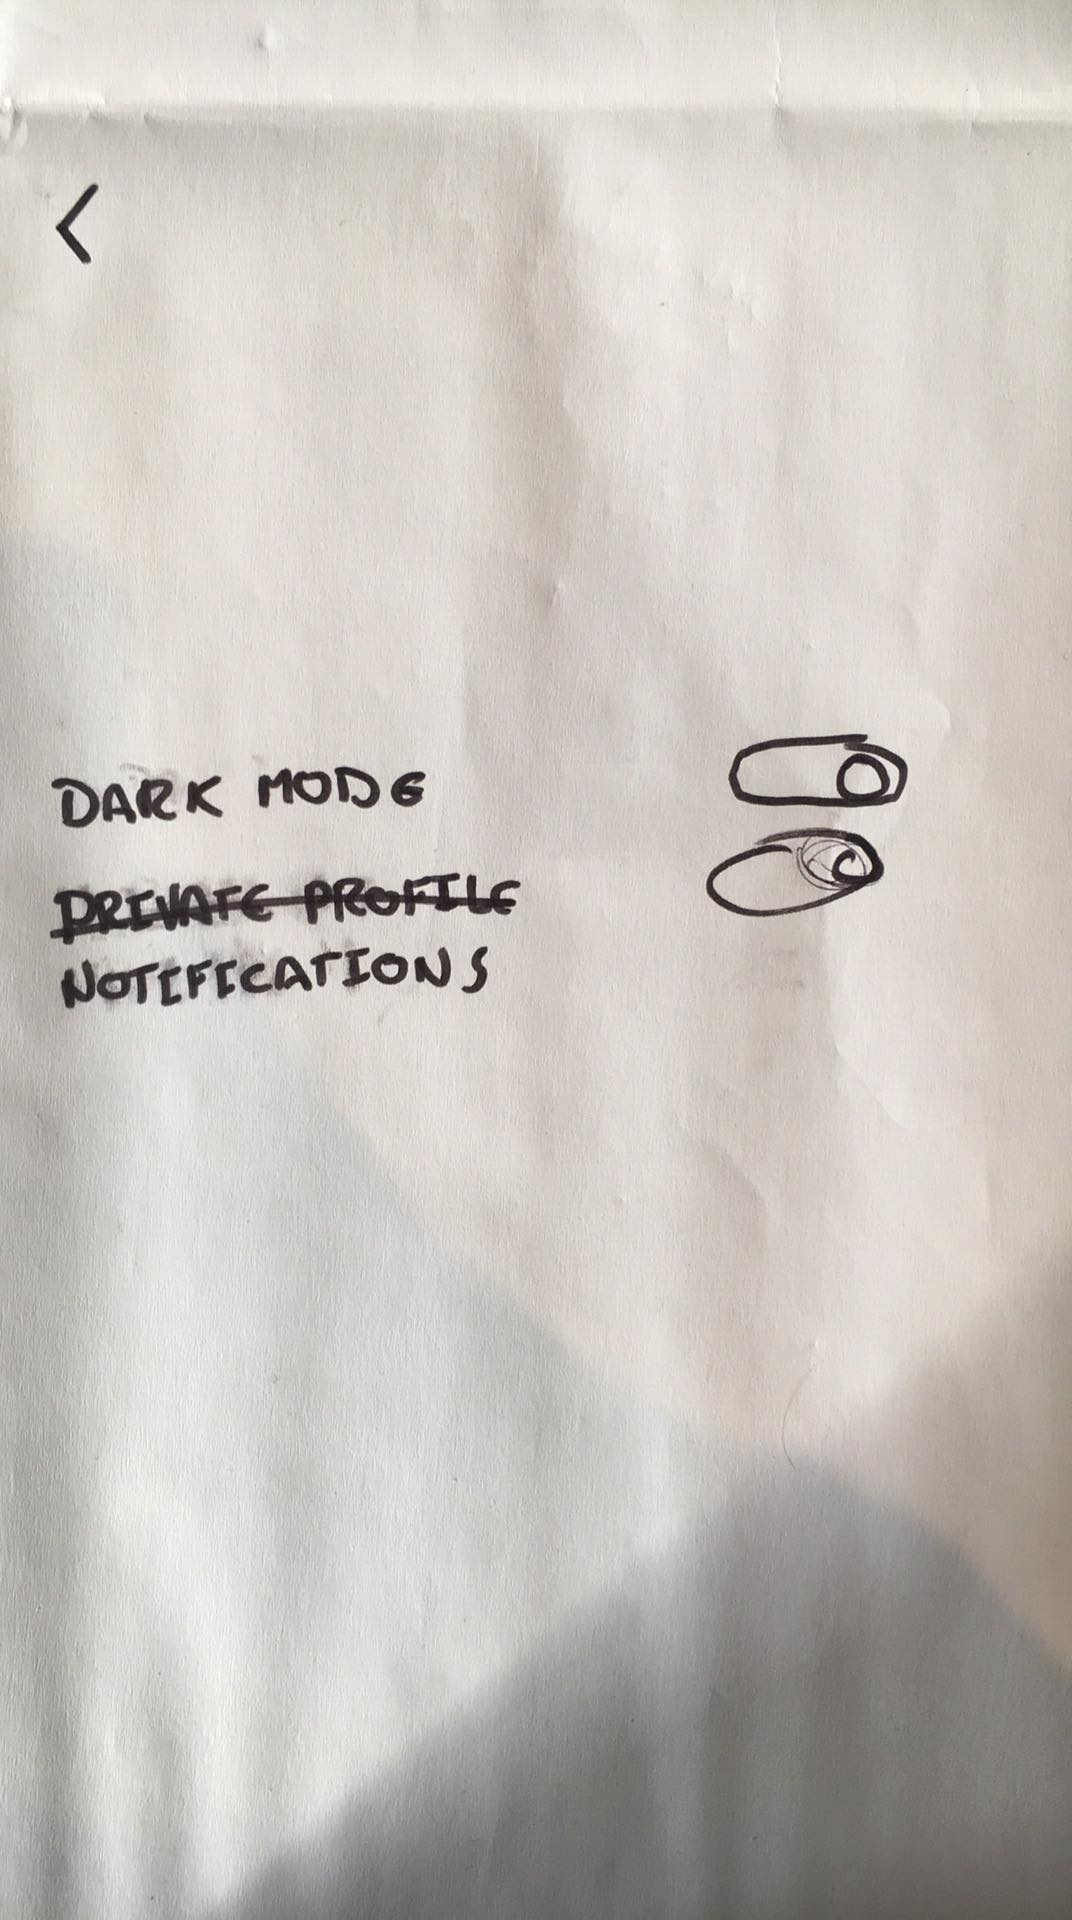 <
DARK MODE
PRIVATE PROFILE
NOTIFICATIONS